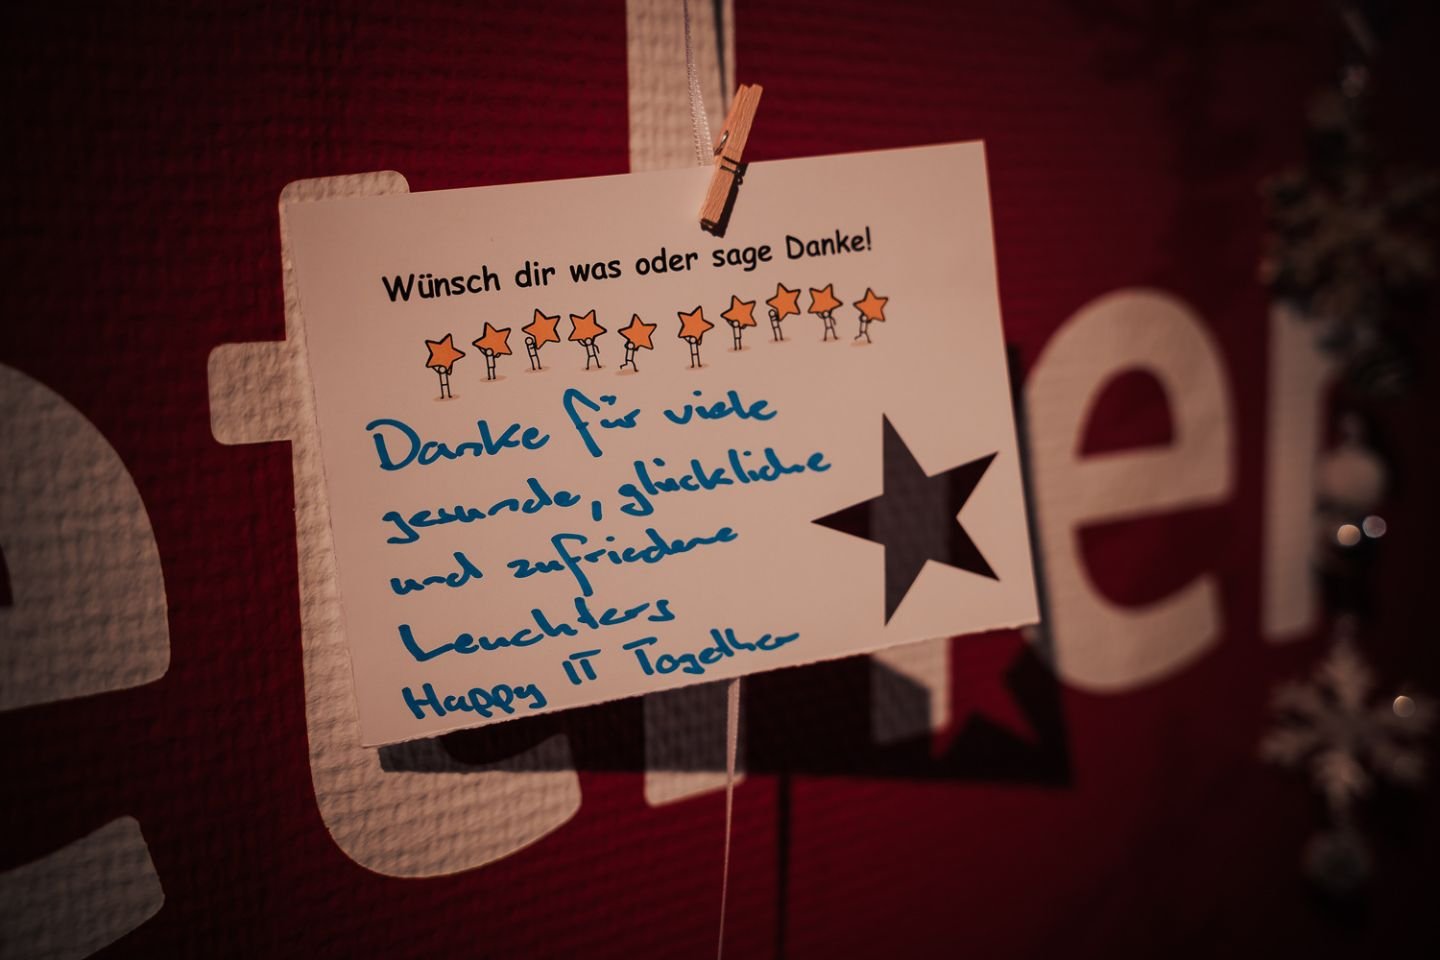 Wünsch dir was oder sage Danke!
Danke für viele
gesunde, glückliche
und zufriedene
Leuchters
Happy IT Together